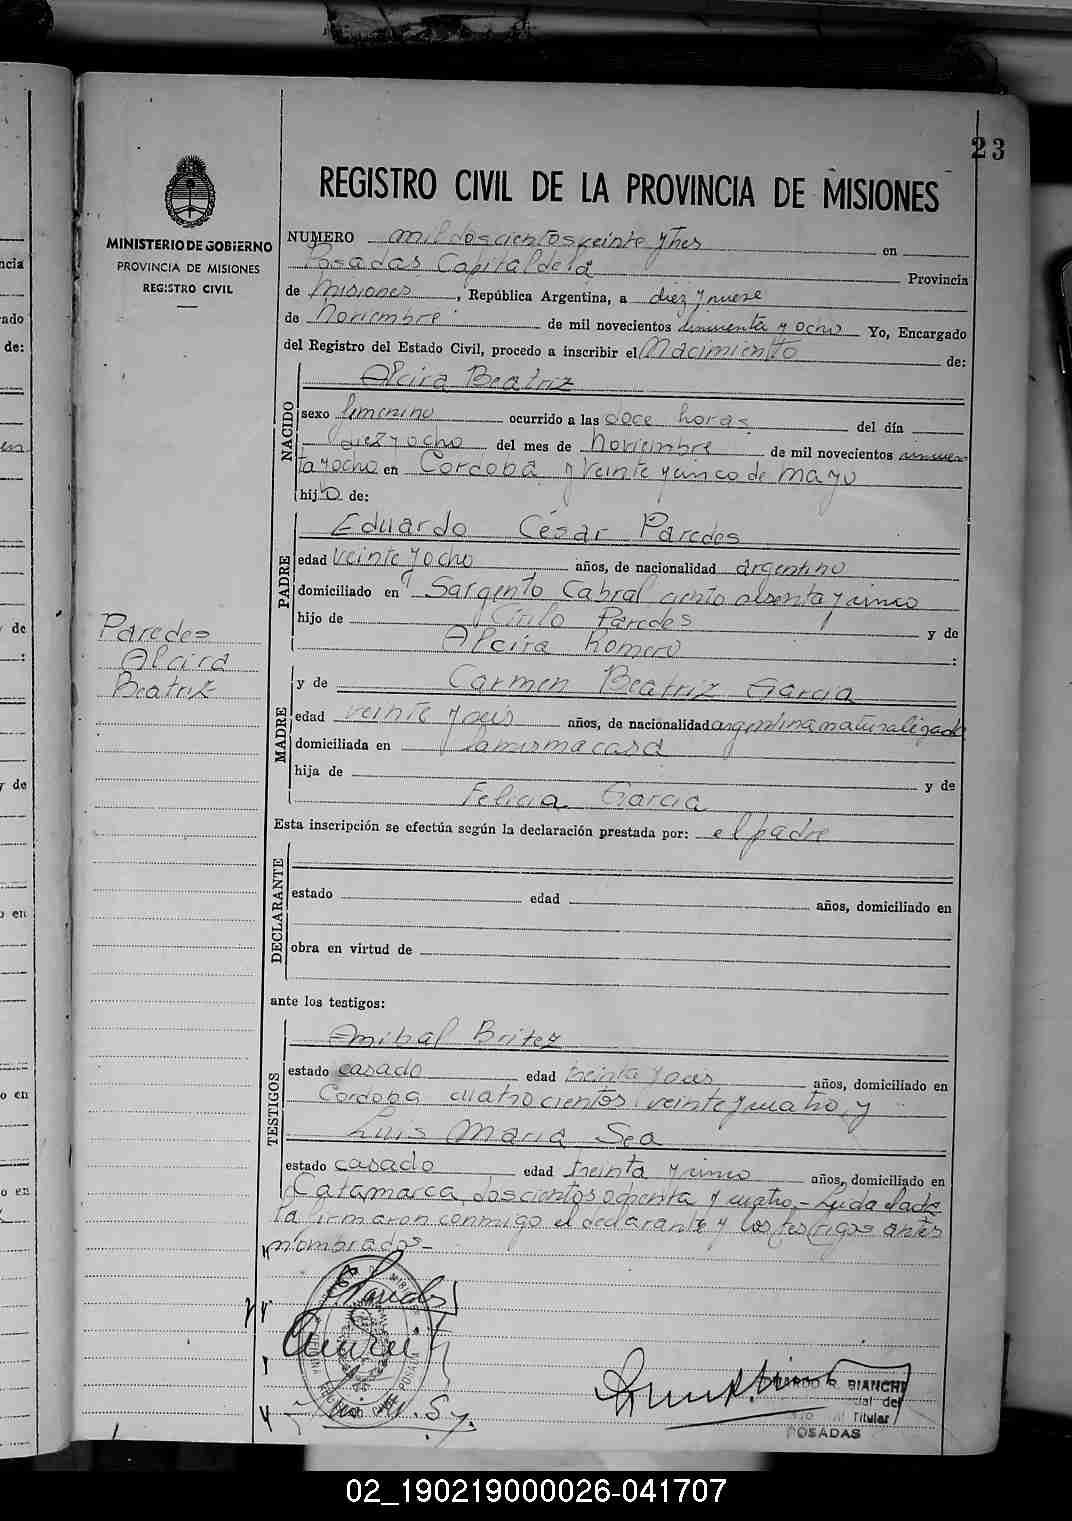 23
REGISTRO CIVIL DE LA PROVINCIA DE MISIONES
MINISTERIO DE GOBIERNO
PROVINCIA DE MISIONES
REGISTRO CIVIL
NUMERO mil doscientos veinte y tres en
Posadas Capital de la Provincia
de Misiones, República Argentina, a diez y nueve
de Noviembre de mil novecientos cincuenta y ocho Yo, Encargado
del Registro del Estado Civil, procedo a inscribir el Nacimiento de:
NACIDO
Alcira Beatriz
sexo femenino ocurrido a las doce horas del día
diez y ocho del mes de Noviembre de mil novecientos cincuen
ta y ocho en Cordoba y Veinte y cinco de mayo
hija de:
PADRE
Eduardo César Paredes
edad veinte y ocho años, de nacionalidad argentino
domiciliado en Sargento Cabral ciento y cinco
hijo de Cirilo Paredes y de
Alcira Romero :
Paredes
Alcira
Beatriz
MADRE
y de Carmen Beatriz Garcia
edad veinte y seis años, de nacionalidad argentina naturalizada
domiciliada en la misma casa
hija de y de
Felicia Garcia
Esta inscripción se efectúa según la declaración prestada por: el padre
DECLARANTE
estado edad años, domiciliado en
obra en virtud de
ante los testigos:
TESTIGOS
Anibal Britez
estado casado edad treinta y seis años, domiciliado en
Cordoba cuatrocientos veinte y cuatro, y
Luis Maria Sea
estado casado edad treinta y cinco años, domiciliado en
Catamarca doscientos ochenta y cuatro.- Leida el acta
la firmaron conmigo el declarante y los testigos antes
nombrados-
R. BIANCHI
Titular
POSADAS
02_190219000026-041707